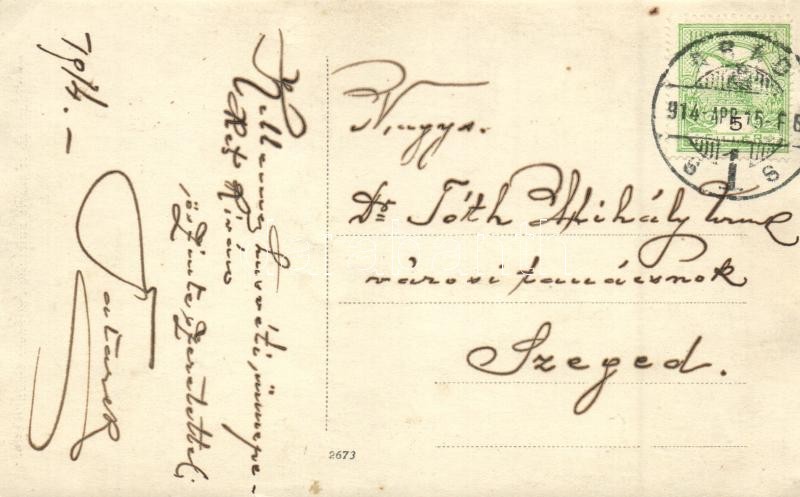 Kellemes húsvéti ünnepe-
ket kíván
őszinte szeretettel:
Tatarek
1914. –
Nagys.
Dr Tóth Mihály
városi tanácsnok
Szeged.
2673
914 APR 15
5
FILLÉR